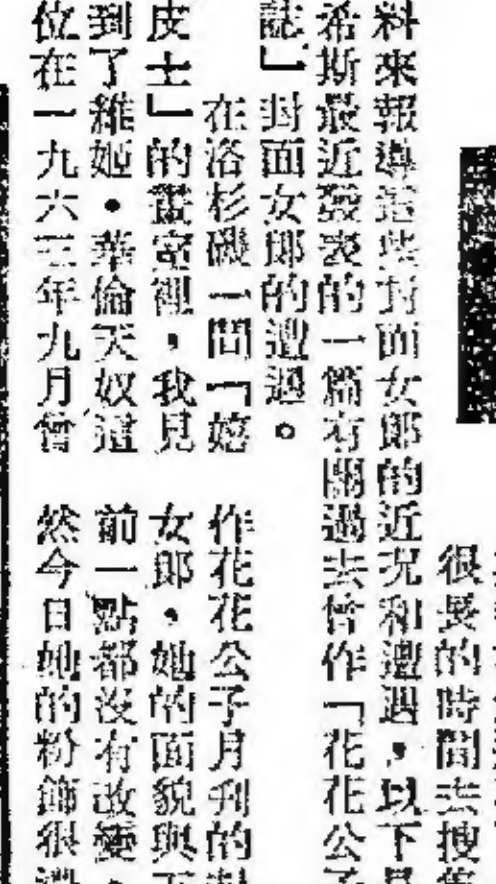 很長的時間去搜
料來報導這些封面女郎的近況和遭遇，以下是
希斯最近發表的一篇有關過去曾作「花花公子
誌」封面女郎的遭遇。
在洛杉磯一間「嬉
皮士」的畫室裡，我見
到了維姬·華倫天奴這
位在一九六三年九月曾
作花花公子月刊的封
女郎，她的面貌與
前一點都沒有改變，
然今日她的粉飾很